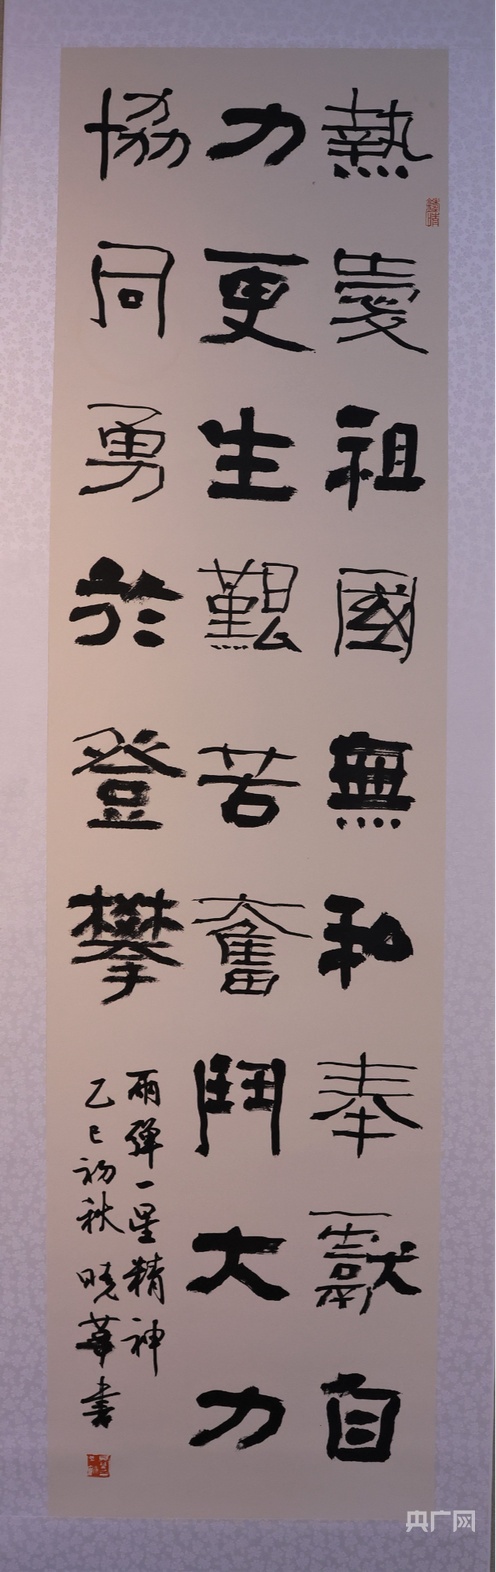 熱愛祖國無私奉獻自
力更生艱苦奮鬥大力
協同勇於登攀
兩彈一星精神
乙巳初秋 曉華書
央广网